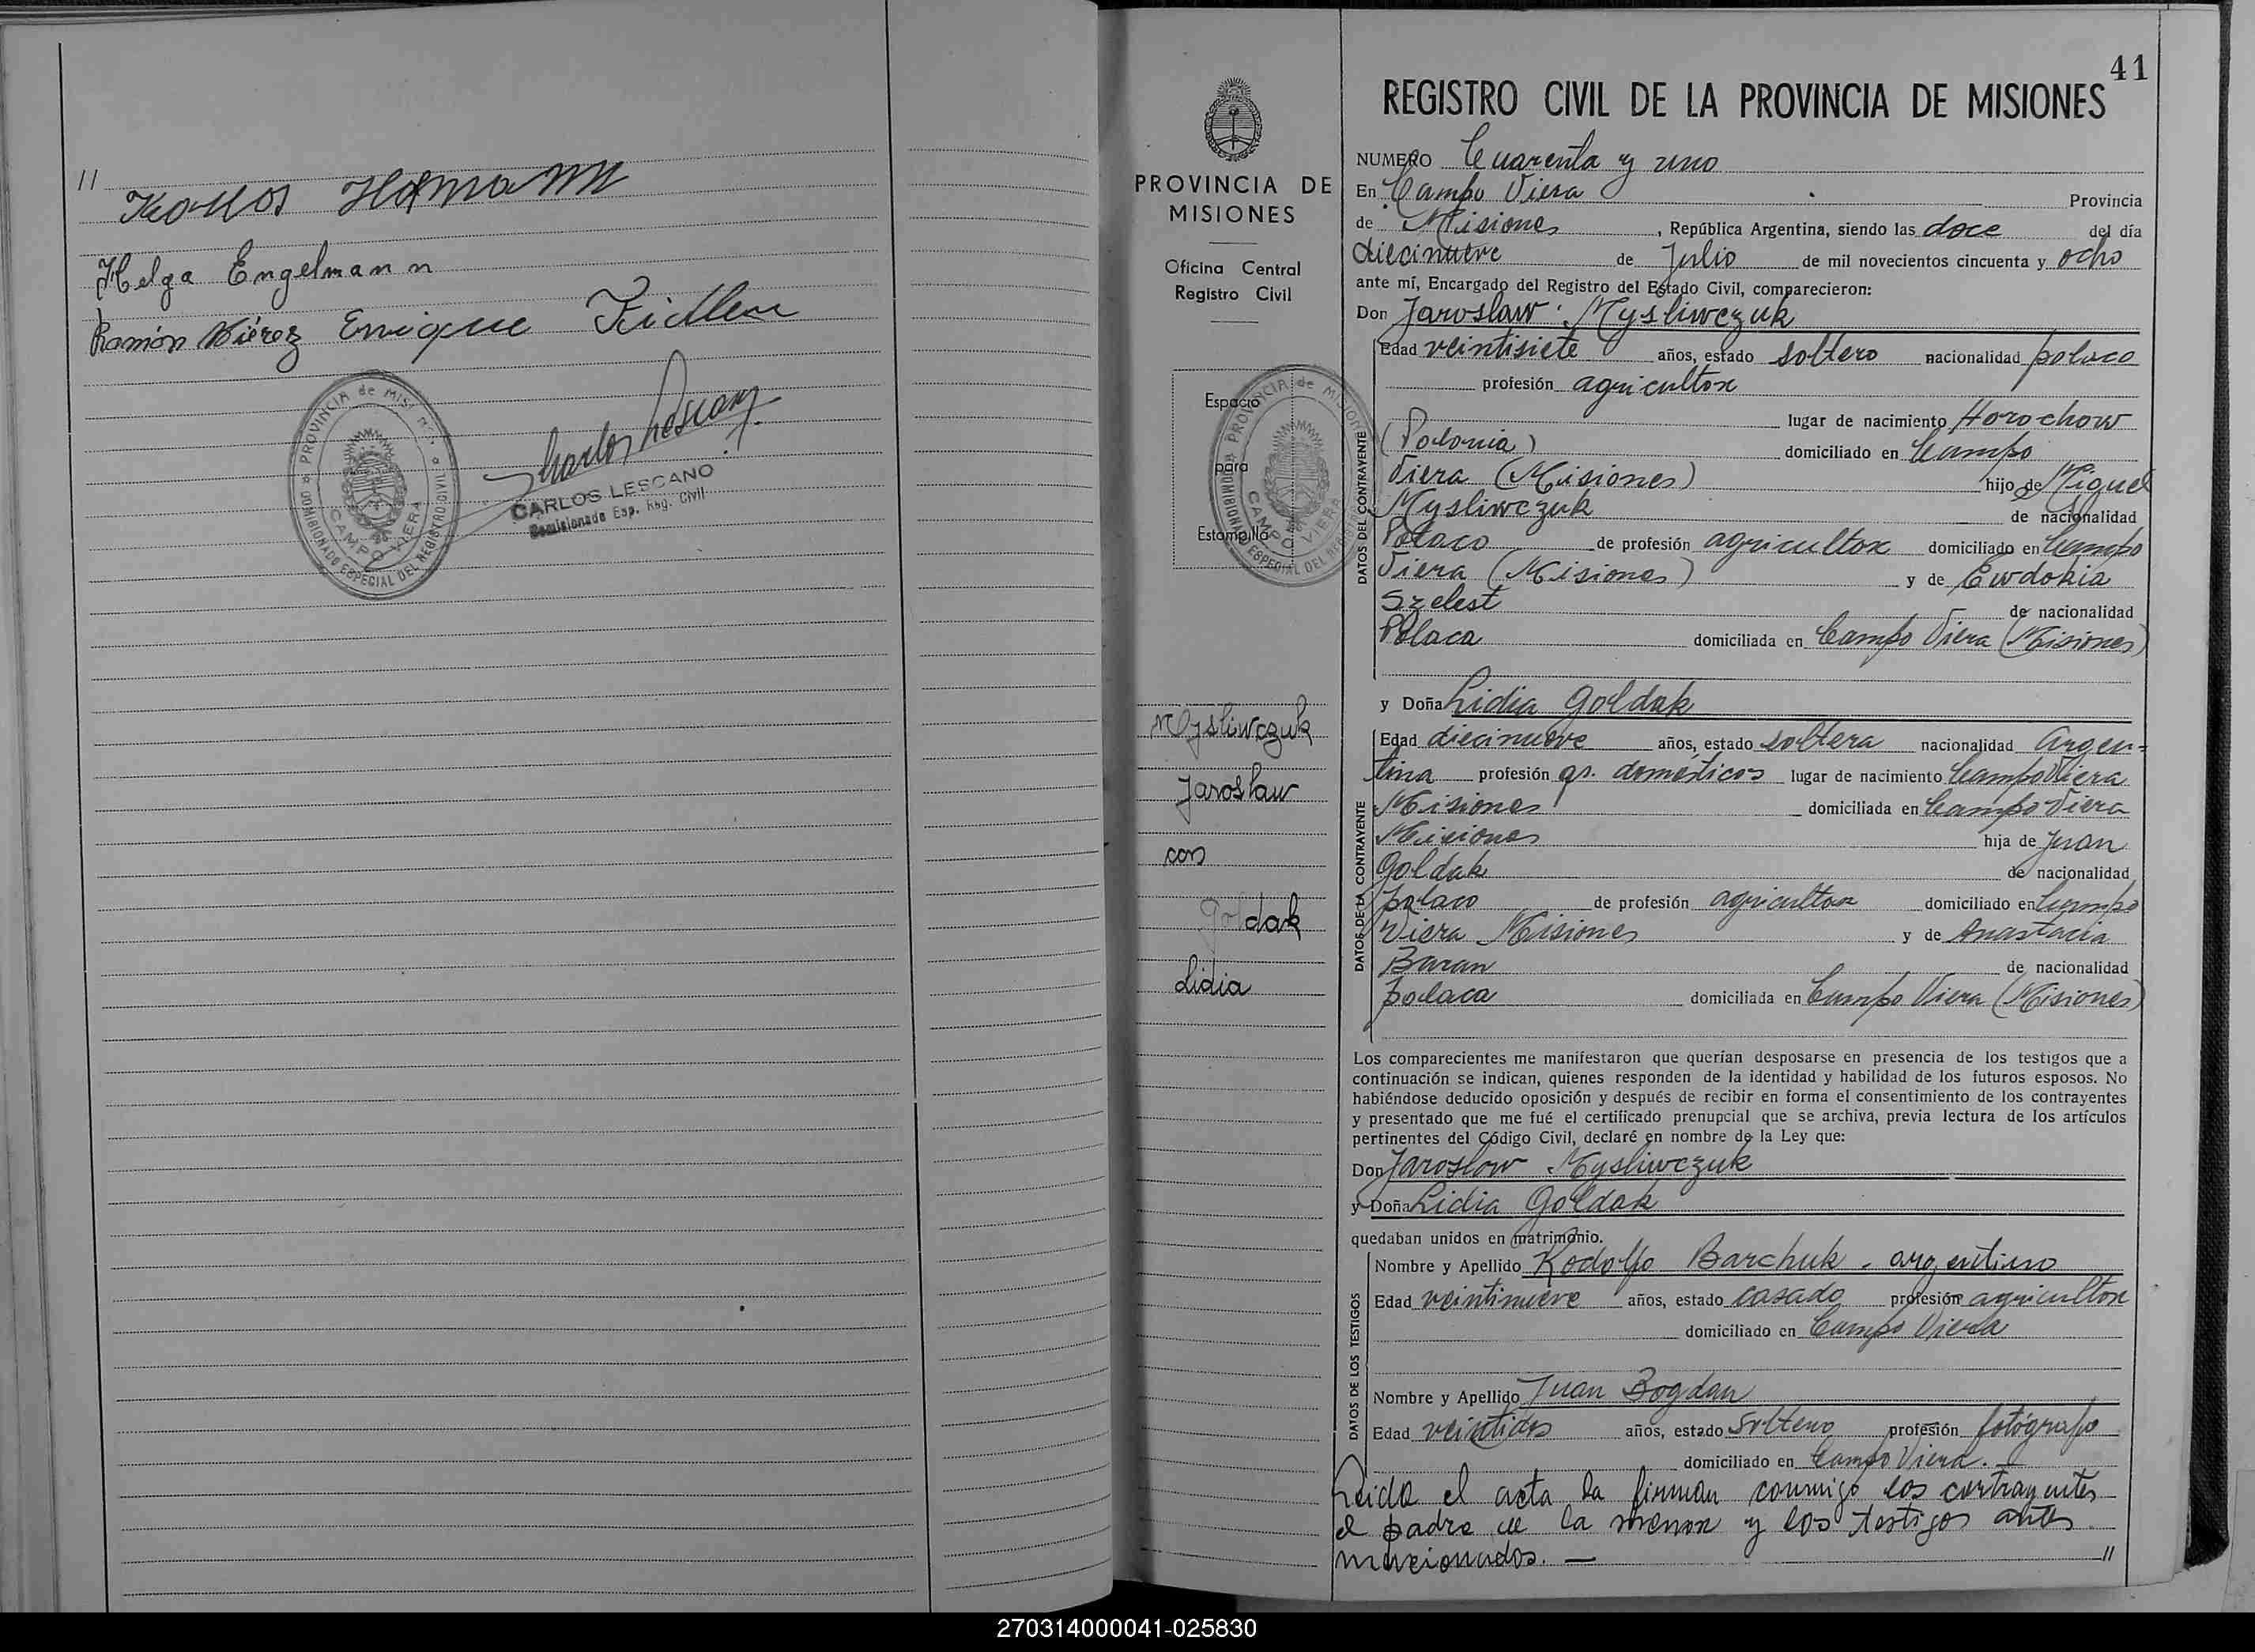 11
Helga Engelmann
Ramón Enrique
PROVINCIA de MISIONES
COMISIONADO ESPECIAL DEL REGISTRO CIVIL
CAMPO VIERA
Carlos Lescano
CARLOS LESCANO
Comisionado Esp. Reg. Civil
PROVINCIA DE
MISIONES
Oficina Central
Registro Civil
Espacio
para
Estampilla
PROVINCIA de MISIONES
COMISIONADO ESPECIAL DEL REGISTRO
CAMPO VIERA
Mysliwczuk
Jaroslaw
con
Goldak
Lidia
41
REGISTRO CIVIL DE LA PROVINCIA DE MISIONES
NUMERO Cuarenta y uno
En Campo Viera Provincia
de Misiones, República Argentina, siendo las doce del día
diecinueve de Julio de mil novecientos cincuenta y ocho
ante mí, Encargado del Registro del Estado Civil, comparecieron:
Don Jaroslaw Mysliwczuk
DATOS DEL CONTRAYENTE
Edad veintisiete años, estado soltero nacionalidad polaco
profesión agricultor
lugar de nacimiento Horochow
(Polonia) domiciliado en Campo
Viera (Misiones) hijo de Miguel
Mysliwczuk de nacionalidad
Polaco de profesión agricultor domiciliado en Campo
Viera (Misiones) y de Ewdokia
Szelest de nacionalidad
Polaca domiciliada en Campo Viera (Misiones)
y Doña Lidia Goldak
DATOS DE LA CONTRAYENTE
Edad diecinueve años, estado soltera nacionalidad Argen=
tina profesión qs. domésticos lugar de nacimiento Campo Viera
Misiones domiciliada en Campo Viera
Misiones hija de Juan
Goldak de nacionalidad
polaco de profesión agricultor domiciliado en Campo
Viera Misiones y de Anastacia
Baran de nacionalidad
polaca domiciliada en Campo Viera (Misiones)
Los comparecientes me manifestaron que querían desposarse en presencia de los testigos que a
continuación se indican, quienes responden de la identidad y habilidad de los futuros esposos. No
habiéndose deducido oposición y después de recibir en forma el consentimiento de los contrayentes
y presentado que me fué el certificado prenupcial que se archiva, previa lectura de los artículos
pertinentes del Código Civil, declaré en nombre de la Ley que:
Don Jaroslow Mysliwczuk
y Doña Lidia Goldak
quedaban unidos en matrimonio.
DATOS DE LOS TESTIGOS
Nombre y Apellido Rodolfo Barchuk - argentino
Edad veintinueve años, estado casado profesión agricultor
domiciliado en Campo Viera
Nombre y Apellido Juan Bogdan
Edad veintidos años, estado soltero profesión fotógrafo
domiciliado en Campo Viera.
Leida el acta la firman conmigo los contrayentes
el padre de la menor y los testigos antes
mencionados. — //
270314000041-025830